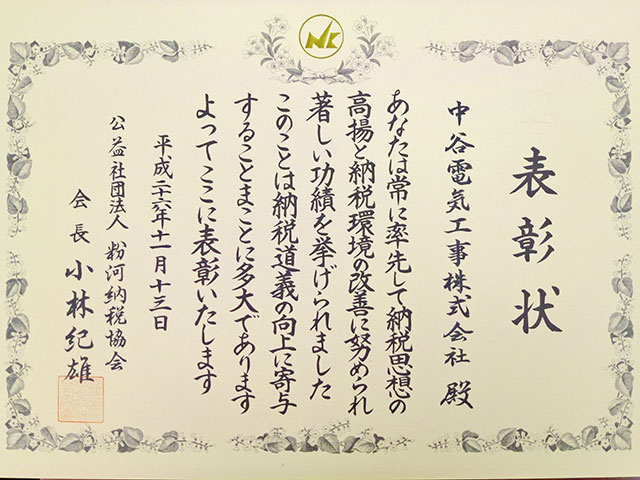 表彰状
中谷電気工事株式会社 殿
あなたは常に率先して納税思想の
高揚と納税環境の改善に努められ
著しい功績を挙げられました
このことは納税道義の向上に寄与
することまことに多大であります
よってここに表彰いたします
平成二十六年十一月十三日
公益社団法人 粉河納税協会
会長 小林紀雄